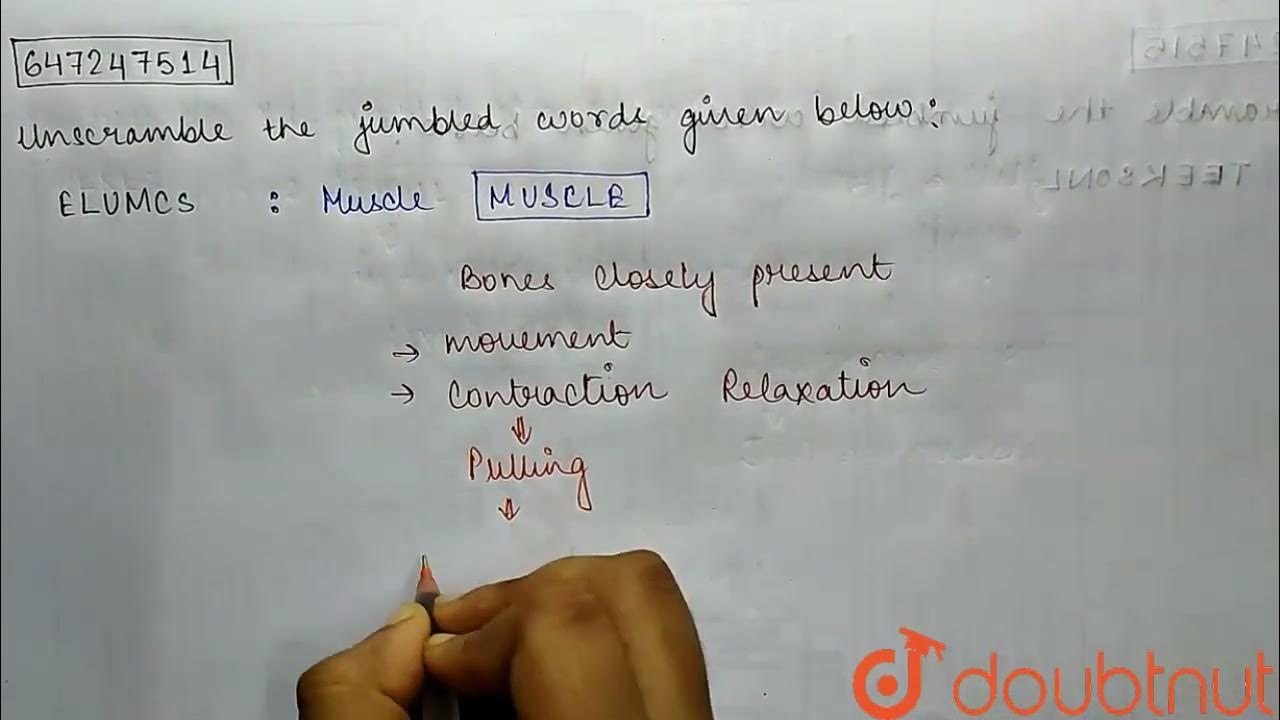 647247514
Unscramble the jumbled words given below:
ELUMCS : Muscle MUSCLE
Bones closely present
→ movement
→ Contraction Relaxation
⇓
Pulling
⇓
doubtnut